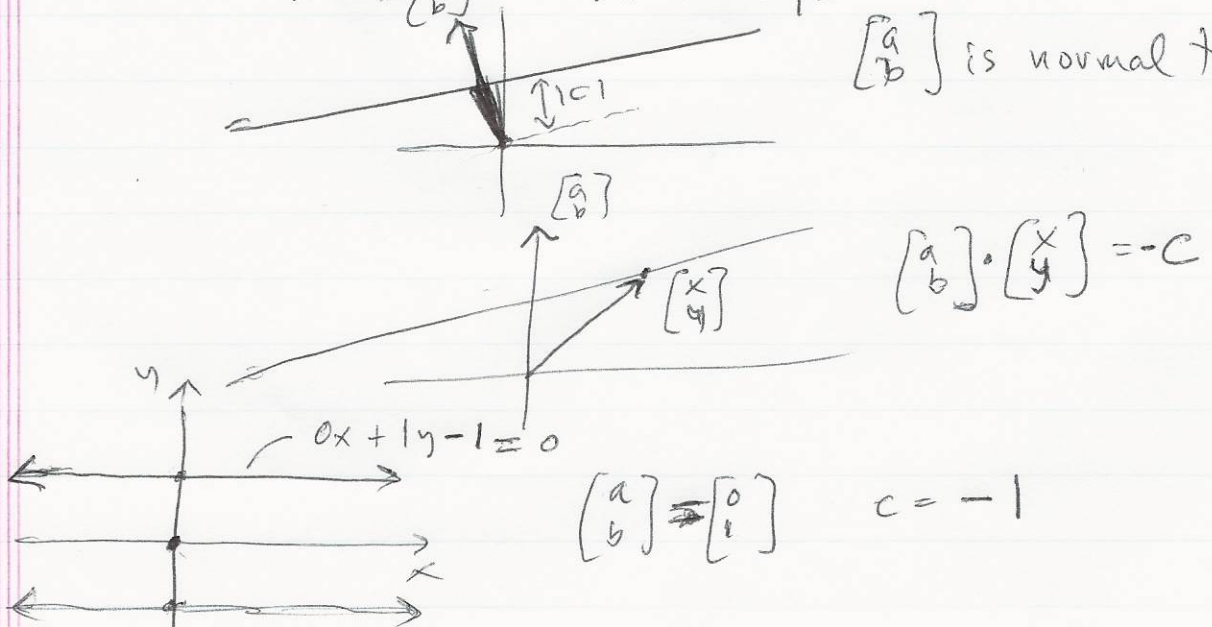 b]
[a b] is normal t
|c|
[a b]
[x y]
[a b] · [x y] = -c
y
0x + 1y - 1 = 0
[a b] = [0 1] c = -1
x